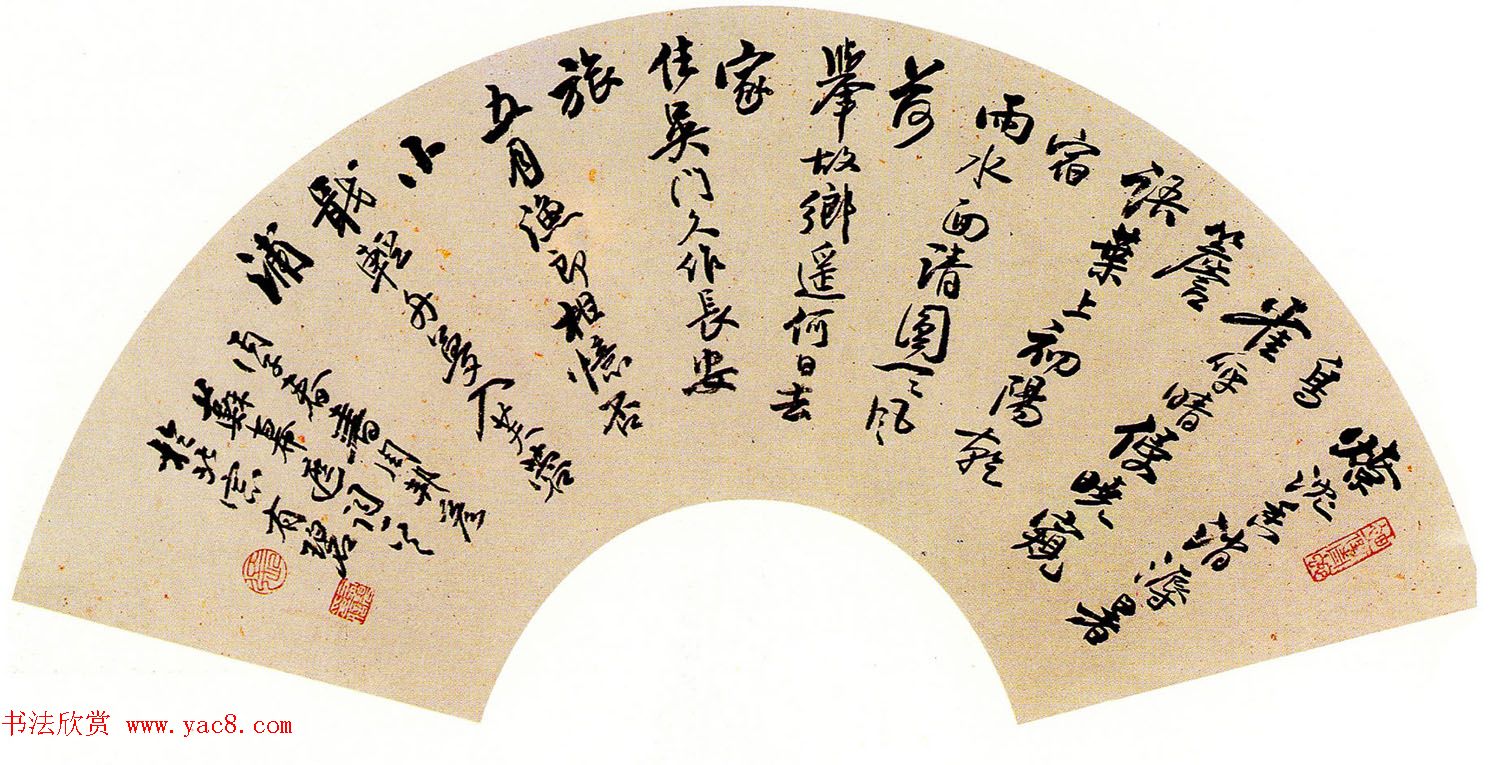 燎沈香消溽暑
鳥
雀呼晴侵曉窺
簷
語葉上初陽乾
宿
雨水面清圓一一風
荷
舉故鄉遙何日去
家
住吳門久作長安
旅
五月漁郎相憶否
小
楫輕舟夢入芙蓉
浦
春書周邦彥
蘇幕遮詞
於北京有
书法欣赏 www.yac8.com